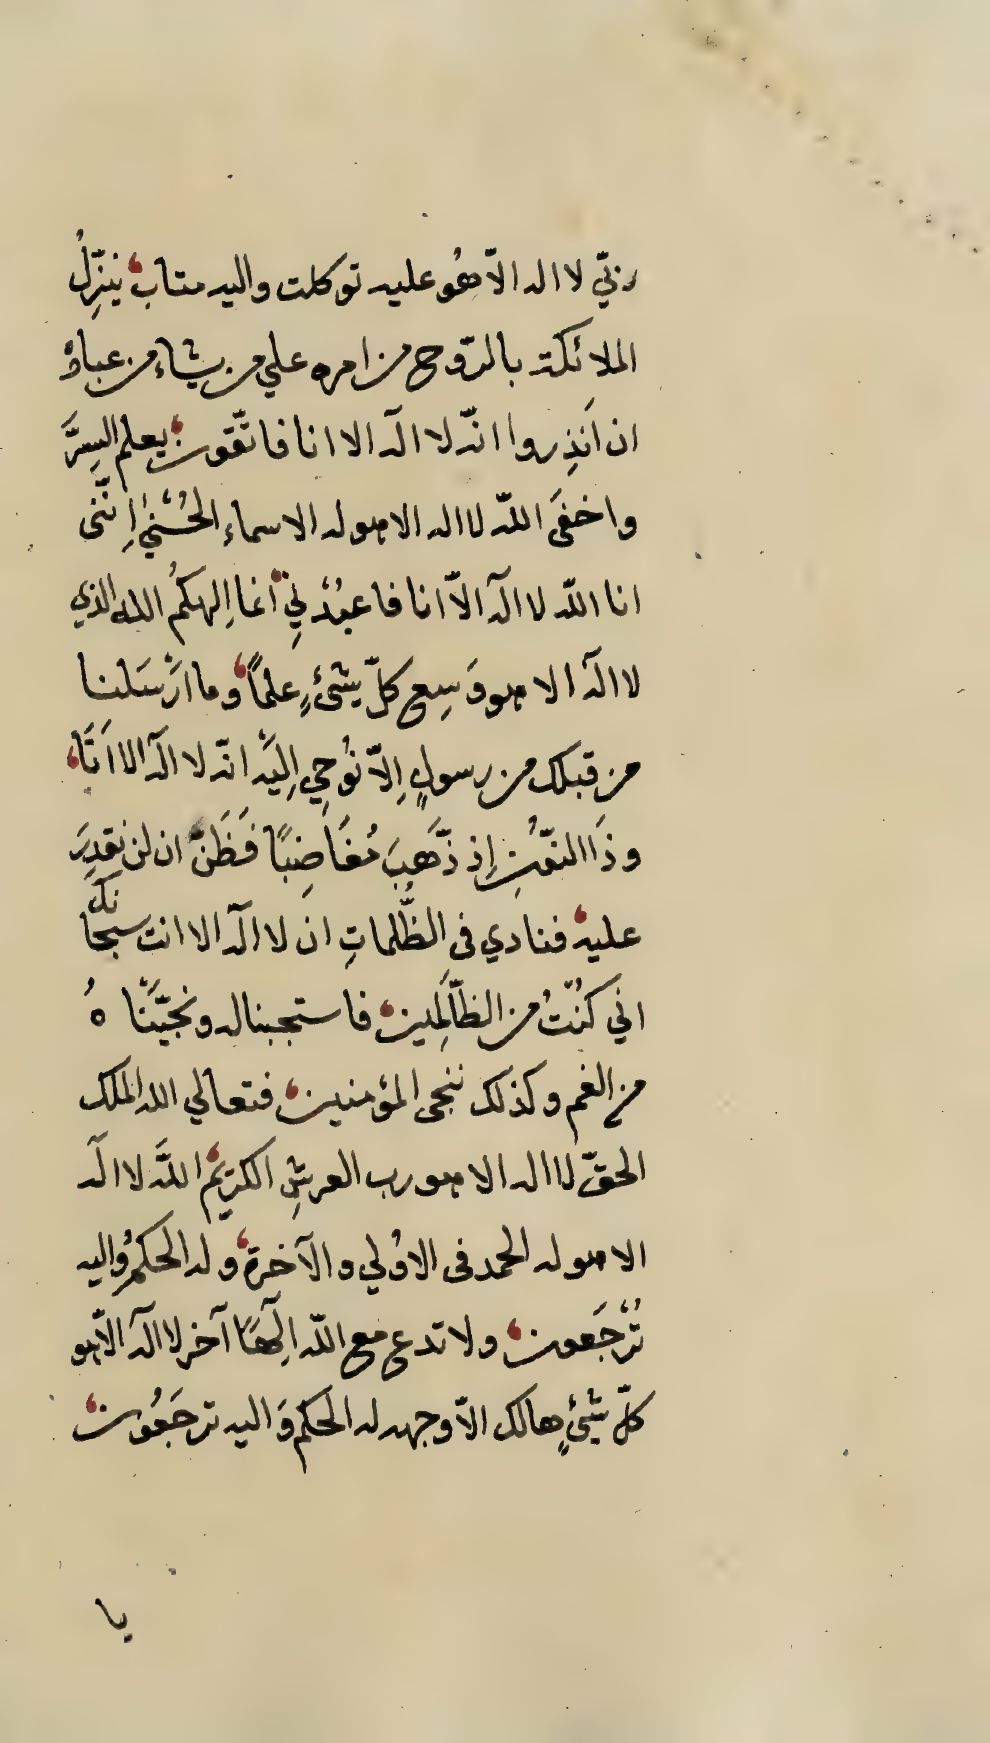 ربّي لا اله الاّ هُو عليه توكلت واليه متاب ينزِّلُ
الملائكة بالرّوح من امره علي من يشاء من عباده
ان اَنذِروا انّه لا الٓه الا انا فاتّقون يعلم السِرَّ
واخفَى اللّه لا اله الا هو له الاسماء الحُسْنيٰ اِنَّنى
انا اللّه لا الٓه الاّ انا فاعبُدْنِي انما اِلهكُم الله الذي
لا الٓه الا هو وَسِع كلّ شئٍ علماً وما ارْسَلنا
من قبلك من رسولٍ اِلاّ نُوحِي اِلَيْه انّه لا الٓه الا اَنَا
وذَا النّوُنِ اِذ ذَّهَبَ مُغَاضِبًا فَظَنَّ ان لن نقدِرَ
عليه فنادي فى الظُّلماتِ ان لا الٓه الا انت سبحانك
اني كُنْتُ من الظّالِمين فاستجبنا له ونجّيْنَاهُ
من الغم وكذلك ننجى المؤمنين فتعالي الله الملك
الحقّ لا اله الا هو رب العرشِ الكريْمُ اللَّه لا الٓه
الا هو له الحمد فى الاوُلي والآخرة وله الحكمُ واليه
تُرْجَعون ولا تدع مع اللّه اِلٓهًا آخر لا الٓه الاّ هو
كلّ شْئٍ هالك الاّ وجهه له الحكم وَاليه ترجَعُون
يا